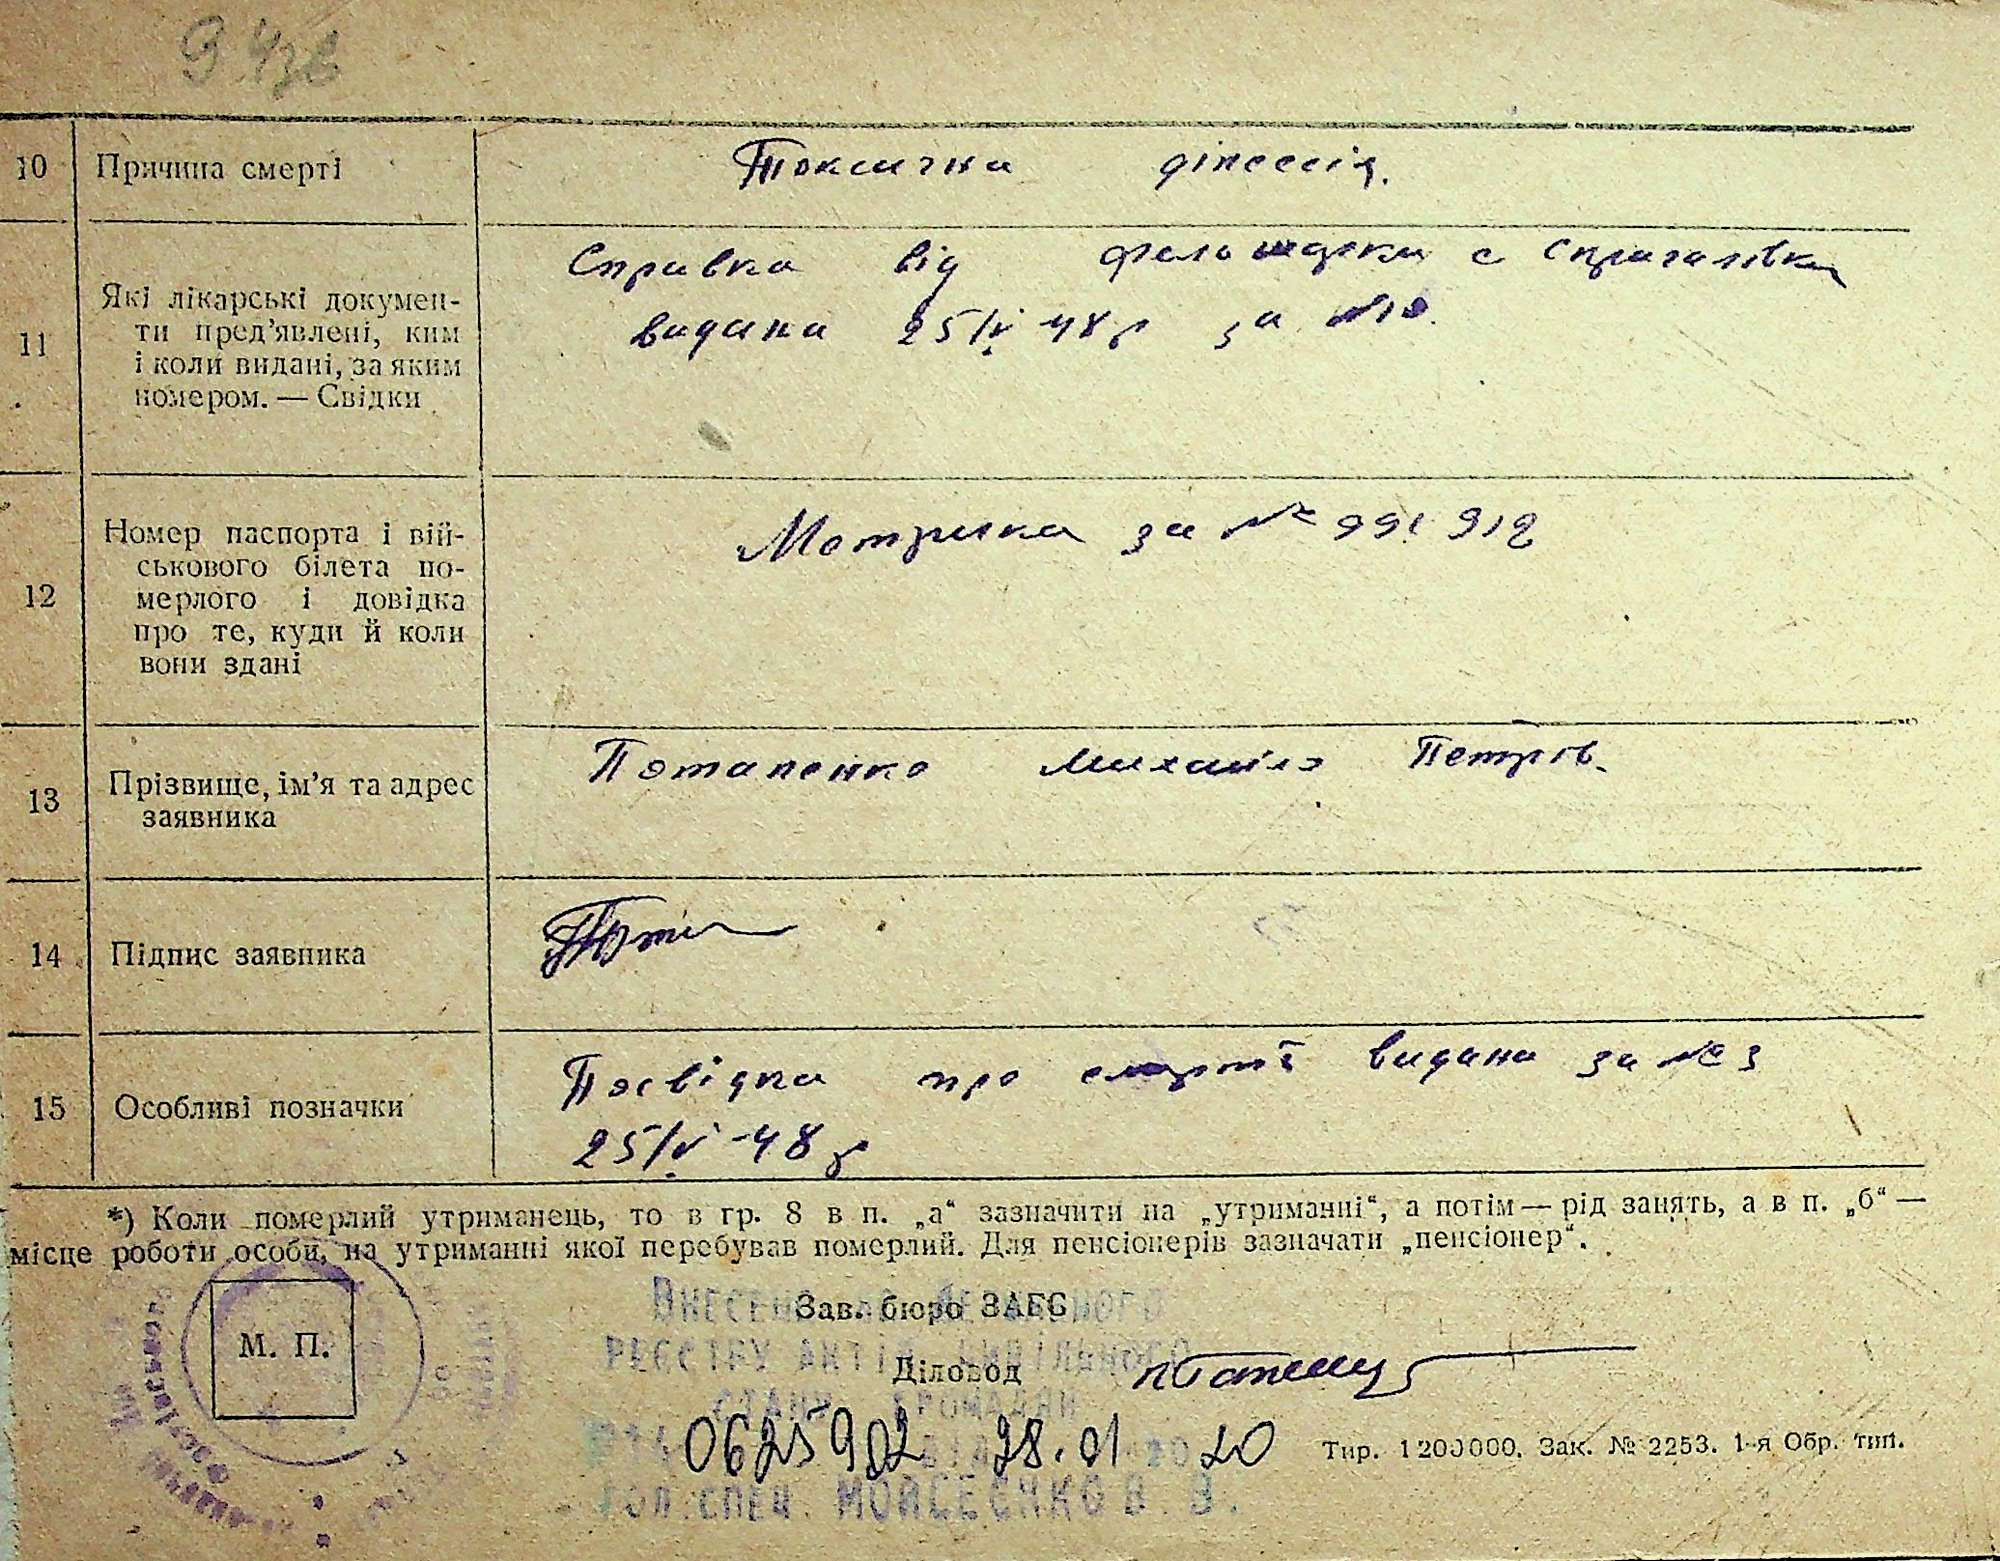 10 Причина смерті Токсична діпессія.
11 Які лікарські докумен-
ти пред'явлені, ким
і коли видані, за яким
номером. — Свідки
Справка від фельшерки с
видана 25/V 48 р за №10.
12 Номер паспорта і вій-
ськового білета по-
мерлого і довідка
про те, куди й коли
вони здані
Мотрика за №
13 Прізвище, ім'я та адрес
заявника
Потапенко Михайло Петрів.
14 Підпис заявника
15 Особливі позначки
Посвідка про смерть видана за № 3
25/V -48 р
*) Коли померлий утриманець, то в гр. 8 в п. „а“ зазначити на „утриманні“, а потім — рід занять, а в п. „б“ —
місце роботи особи, на утриманні якої перебував померлий. Для пенсіонерів зазначати „пенсіонер“.
М. П.
Зав. бюро ЗАГС
Внесено до Державного
реєстру актів цивільного
Діловод
стану громадян
0625902 28.01 20
Тир. 1 200000. Зак. № 2253. 1-я Обр. тип.
гол.спец. Мойсеєнко В. В.